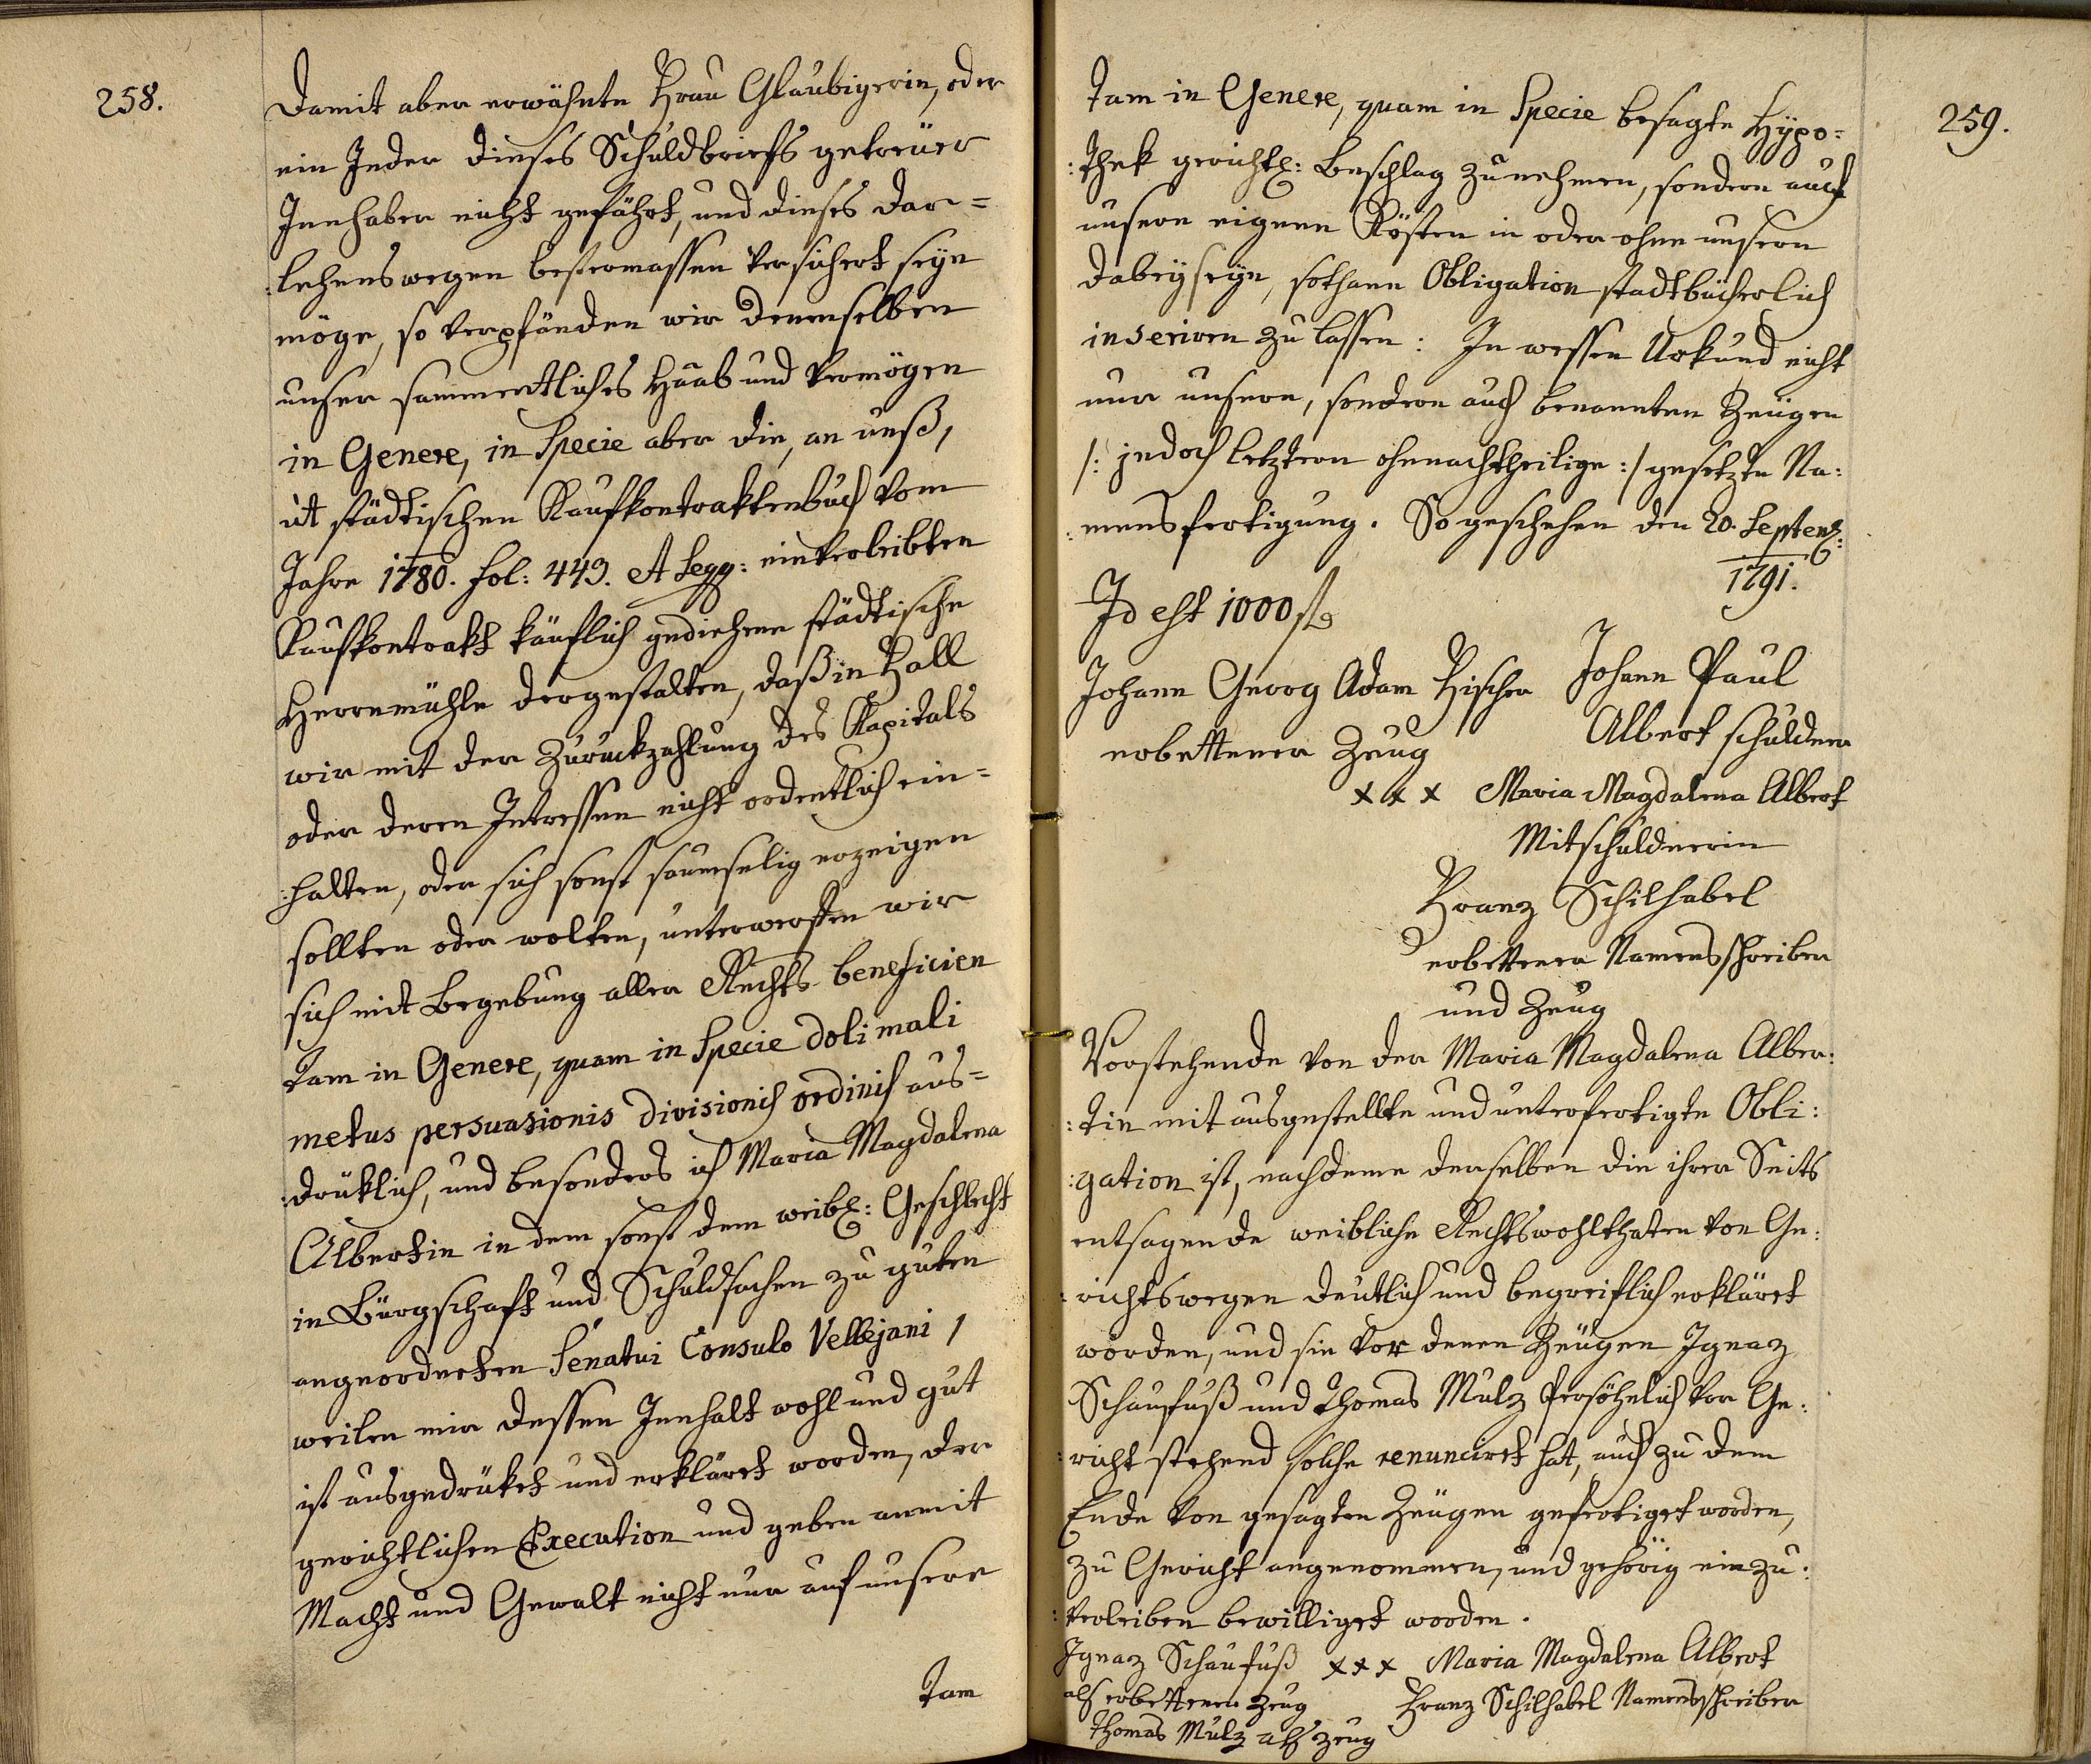 258.
Damit aber erwähnte Frau Glaubigerin, oder
ein Jeder dieses Schuldbriefs getreüer
Innhaber nicht gefährt, und dieses Dar=
:lehenswegen bestermassen versichert seyn
möge, so verpfänden wir denenselben
unser sammentliches Haab und Vermögen
in Genere, in Specie aber die, an unß,
ut städtischen Kaufkontraktenbuch vom
Jahre 1780. fol: 443. et Segq: einverleibten
Kaufkontrakt käuflich gediehene städtische
Herrnmühle dergestalten, daß in Fall
wir mit der Zuruckzahlung des Kapitals
oder deren Intressen nicht ordentlich ein=
:halten, oder sich sonst saumselig erzeigen
sollten oder wolten, unterwerffen wir
sich mit Begebung aller Rechts beneficien
tam in Genere, quam in Specie doli mali
metus persuasionis divisionis ordinis aus=
:drüklich, und besonders ich Maria Magdalena
Albertin in dem sonst dem weibl: Geschlecht
in Bürgschaft und Schuldsachen zu guten
angeordneten Senatui Consulo Vellejani,
weilen mir dessen Innhalt wohl und gut
ist ausgedrüket und erkläret worden, der
gerichtlichen Execution und geben anmit
Macht und Gewalt nicht nur auf unsere
tam
259.
tam in Genere, quam in Specie besagte Hypo=
:thek gerichtl: Beschlag zu nehmen, sondern auch
unsern eigenen Kösten in oder ohne unsern
dabeyseyn, sothane Obligation stadtbücherlich
inseriren zu lassen: In wessen Urkund nicht
nur unsere, sondern auch benannten Zeugen
/: jedoch letztern ohnnachtheilige :/ gesetzte Na:
:mensfertigung. So geschehen den 20. Septem:
1791.
Id est 1000 f
Johann Georg Adam Fischer
erbettener Zeug
Johann Paul
Albert schuldner
x x x Maria Magdalena Albert
Mitschuldnerin
Franz Schilhabel
erbettener Namensschreiber
und Zeug
Vorstehende von der Maria Magdalena Alber:
:tin mit ausgestellte und unterfertigte Obli:
:gation ist, nachdeme derselben die ihrer Seits
entsagende weibliche Rechtswohlthaten von Ge:
:richtswegen deutlich und begreiflich erkläret
worden, und sie vor denen Zeugen Ignaz
Schaufuß und Thomas Mulz persöhnlich vor Ge:
:richt stehend solche renunciret hat, auch zu dem
Ende von gesagten Zeugen gefertiget worden,
zu Gericht angenommen, und gehörig einzu:
:verleiben bewilliget worden.
Ignaz Schaufuß x x x Maria Magdalena Albert
als erbettener Zeug Franz Schilhabel Namensschreiber
Thomas Mulz als Zeug